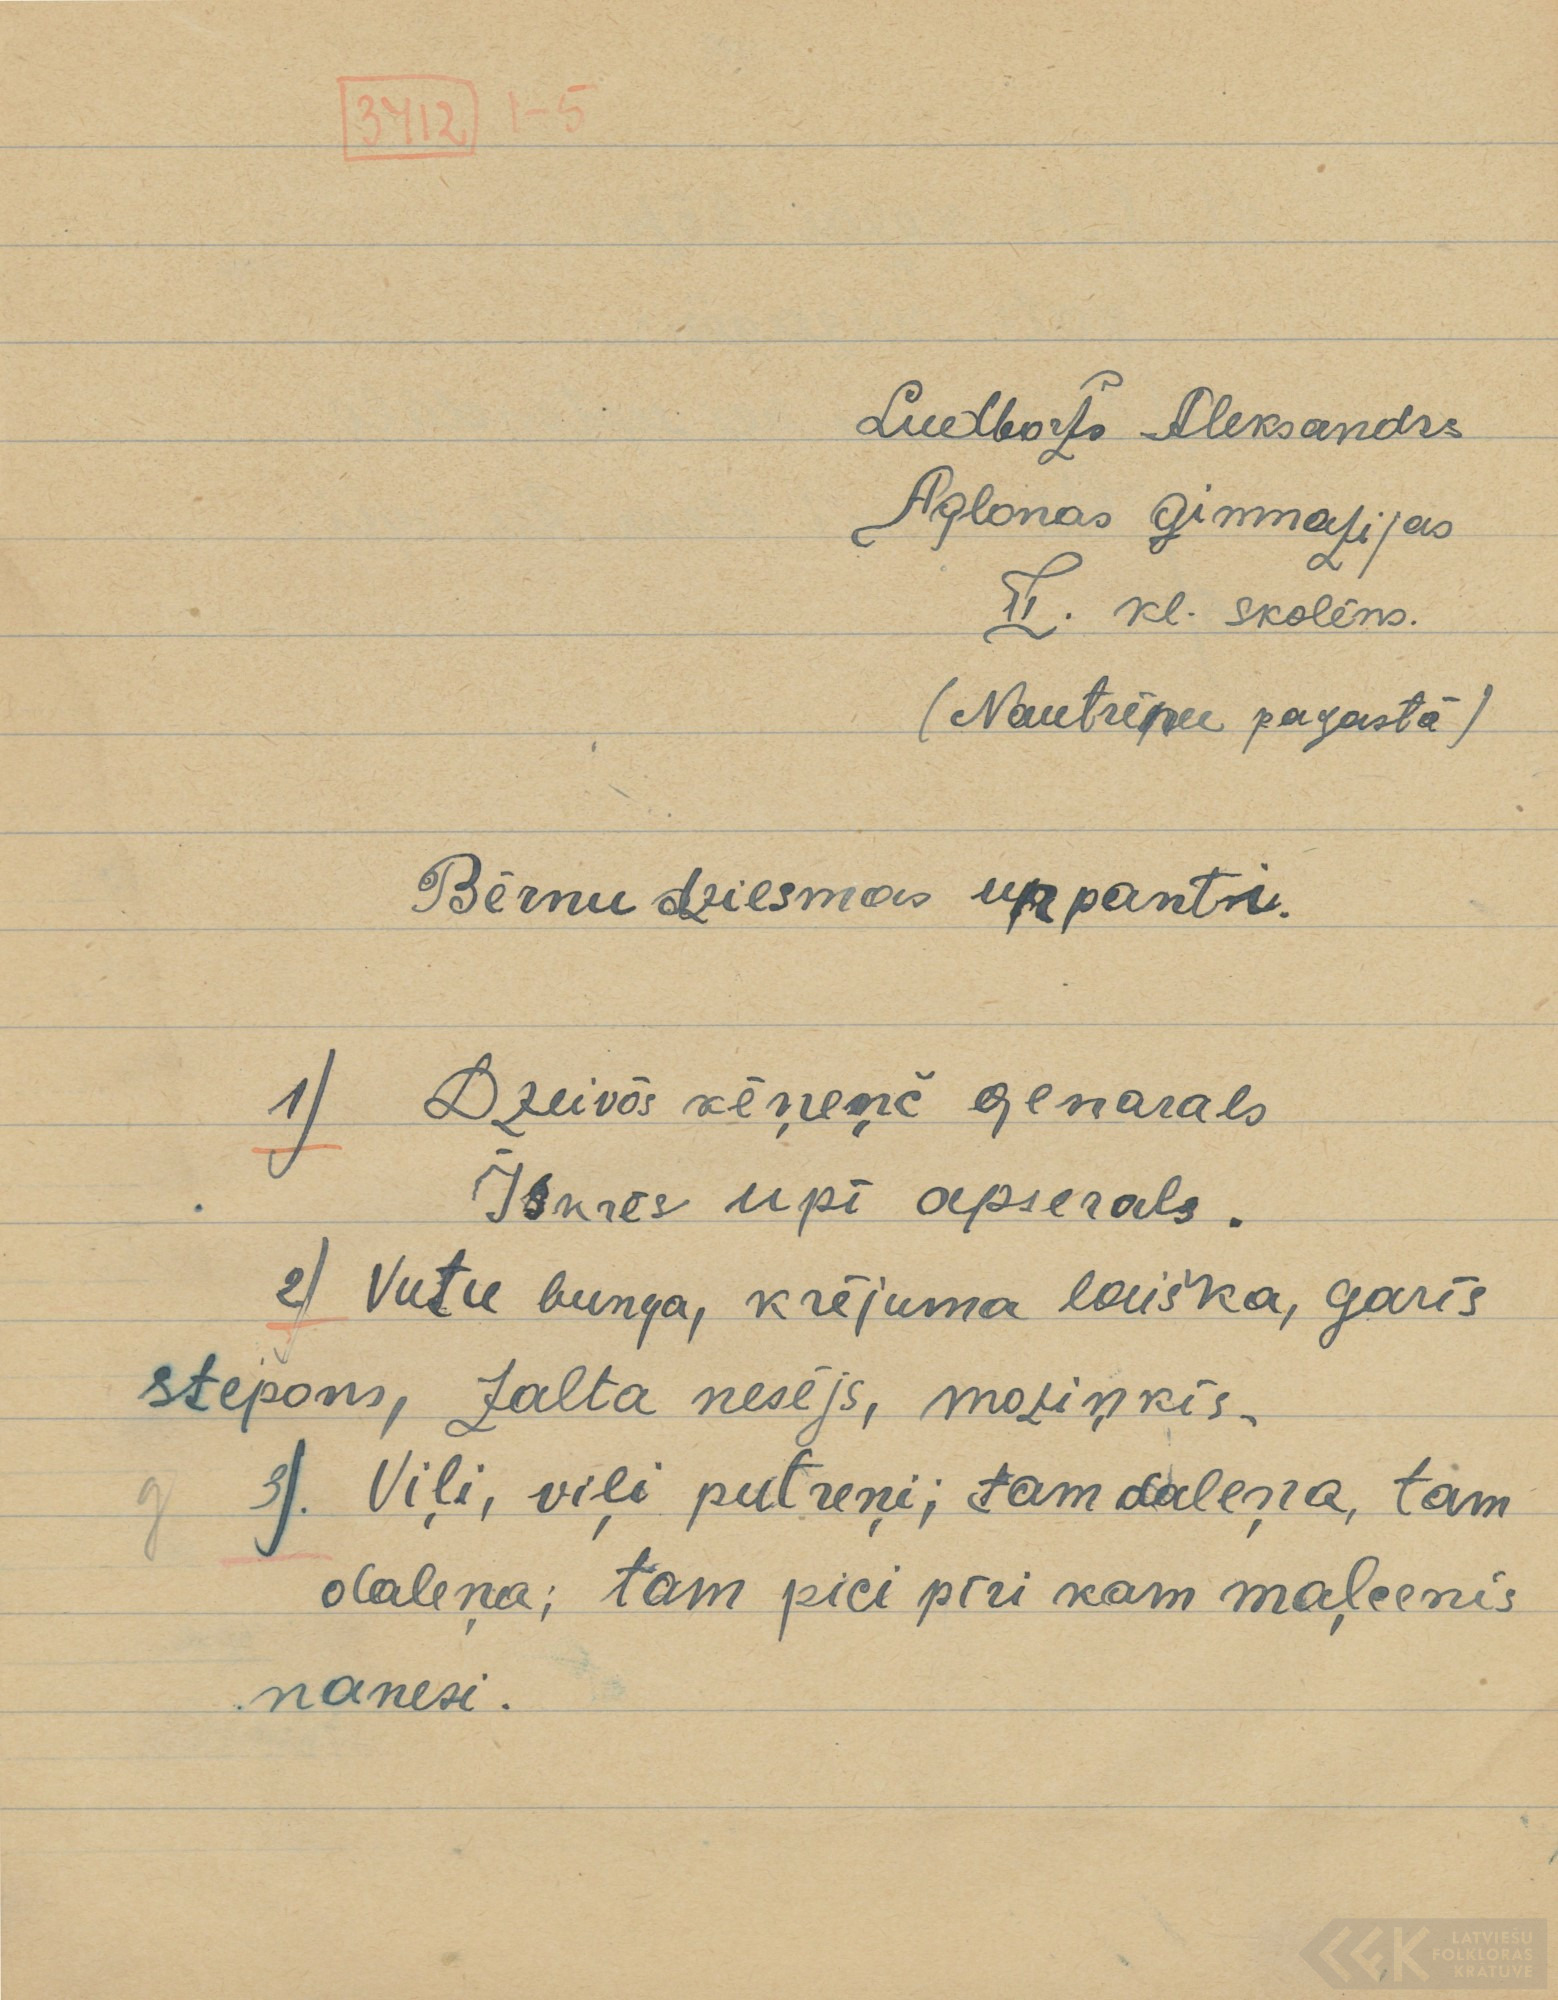 3412 1-5
Ludboržs Aleksandrs
Aglonas ģimnazijas
II. kl. skolēns.
(Nautrēnu pagastā)
Bērnu dziesmas un pantri.
1) Dzeivōs kēņeņč genarals
Īskrēs upī apserals.
2) Vutu bunga, krējuma laiška, garīs
stepons, zalta nesējs, moziņkīs.
g 3). Viļi, viļi putreņi; tam daleņa, tam
daleņa; tam pici pīri kam maļcenis
nanesi.
LATVIEŠU
FOLKLORAS
KRĀTUVE